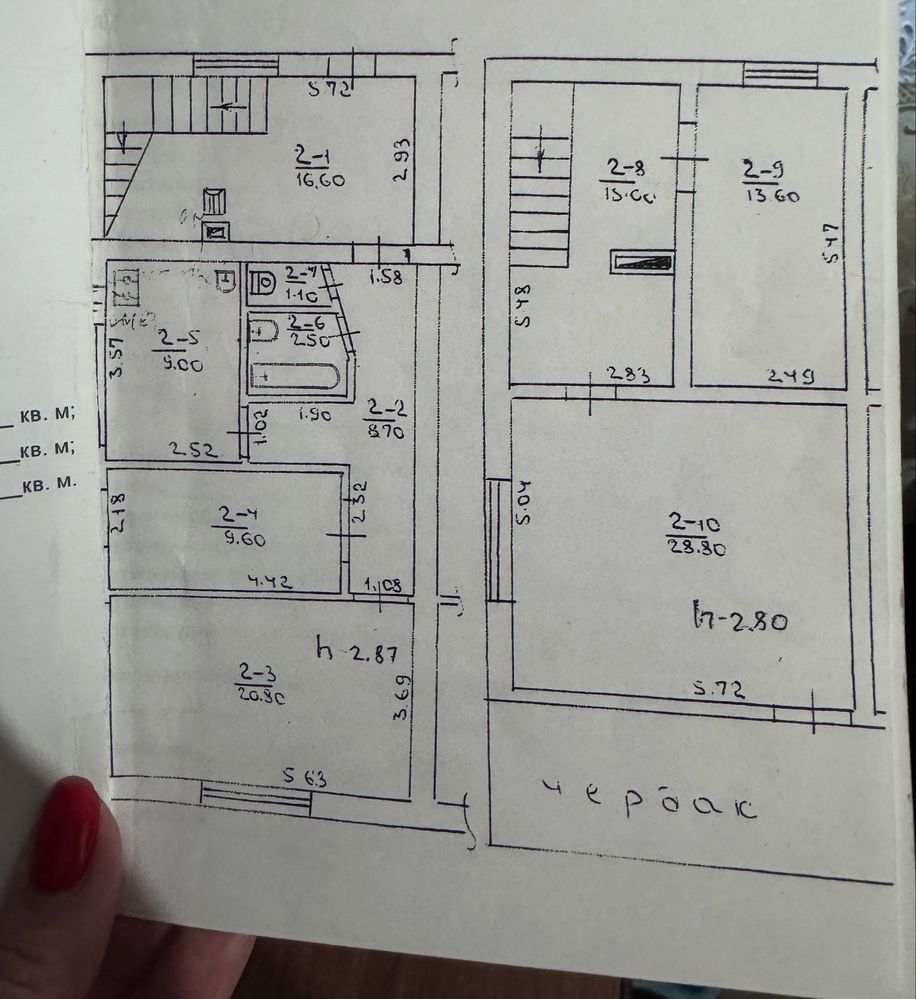 кв. м;
кв. м;
кв. м.
5.72
2-1
16.60
2.93
1.58
2-7
1.10
2-6
2.50
1.90
2-5
9.00
3.57
2.52
1.02
2-2
8.70
2-4
9.60
2.18
4.42
2.32
1.08
h-2.87
2-3
20.80
3.69
5.63
2-8
15.00
5.48
2.83
2-9
13.60
5.47
2.49
5.04
2-10
28.80
h-2.80
5.72
чердак